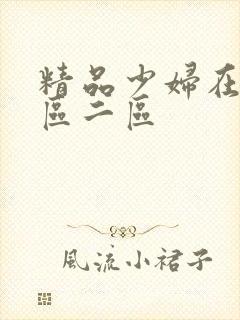 精品少婦在
區二區
風流小裙子